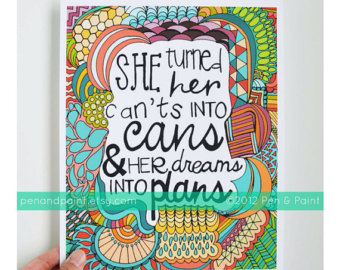 SHE turned
her
can'ts INTO
cans
& HER dreams
INTO plans
penandpaint.etsy.com
©2012 Pen & Paint